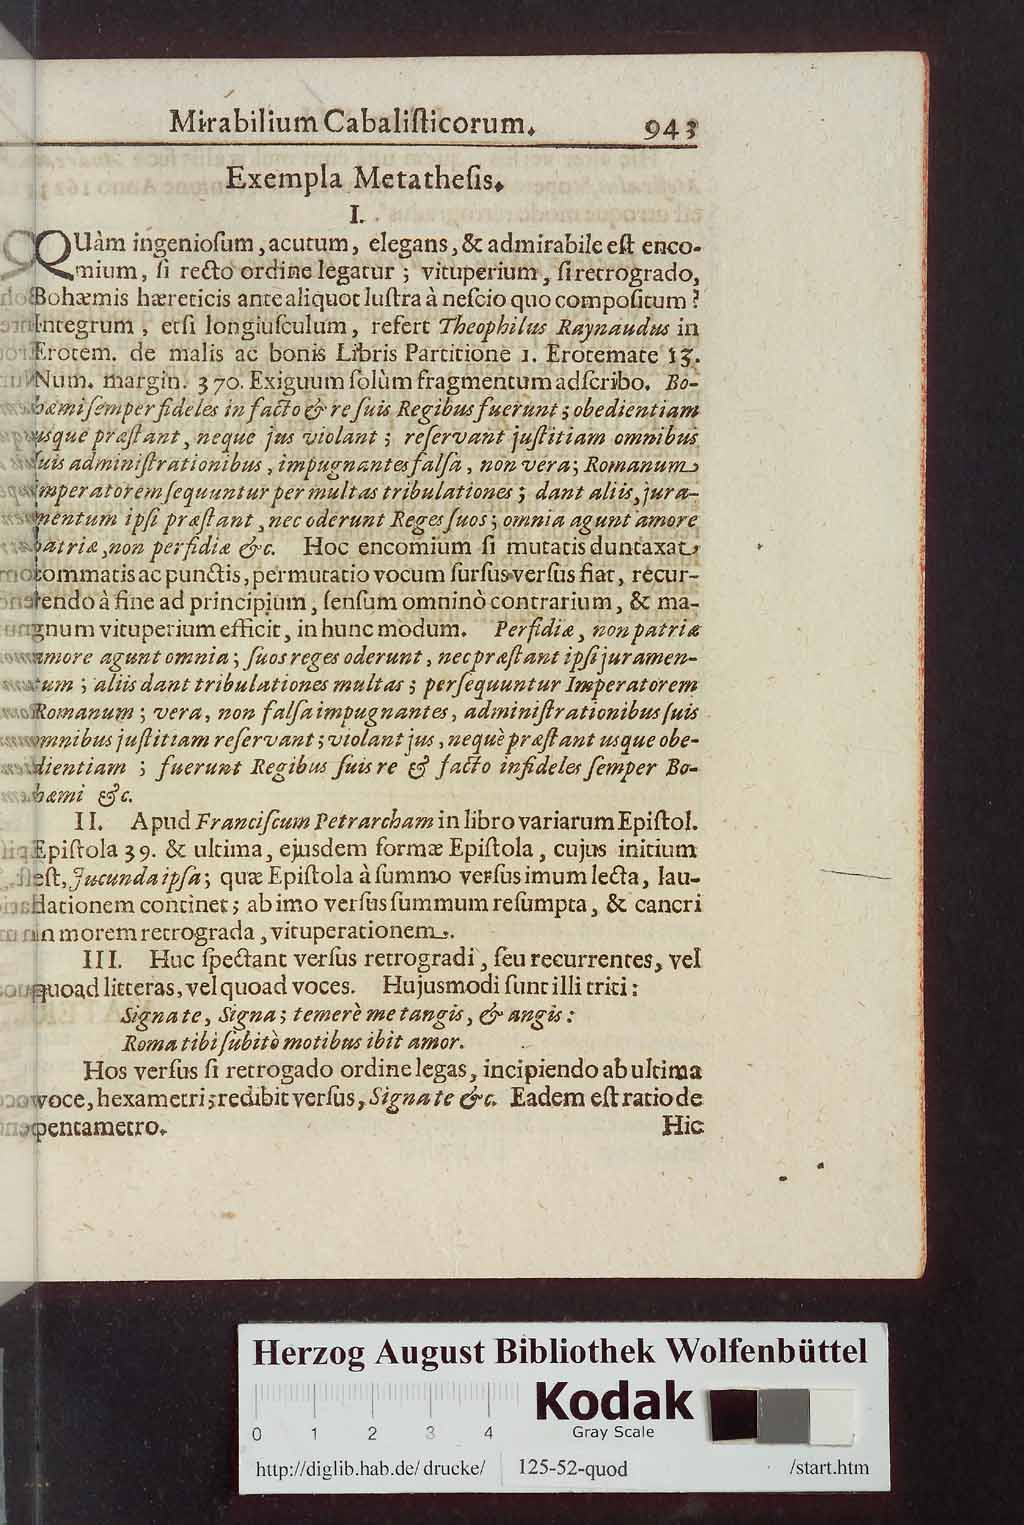 Mirabilium Cabaliſticorum. 943
Exempla Metatheſis.
I.
QUàm ingenioſum, acutum, elegans, & admirabile eſt enco-
mium, ſi recto ordine legatur; vituperium, ſi retrogrado,
Bohæmis hæreticis ante aliquot luſtra à neſcio quo compoſitum?
Integrum, etſi longiuſculum, refert Theophilus Raynaudus in
Erotem. de malis ac bonis Libris Partitione 1. Erotemate 13.
Num. margin. 370. Exiguum ſolùm fragmentum adſcribo. Bo-
hæmi ſemper fideles in facto & re ſuis Regibus fuerunt; obedientiam
usque præſtant, neque jus violant; reſervant juſtitiam omnibus
ſuis adminiſtrationibus, impugnantes falſa, non vera; Romanum
Imperatorem ſequuntur per multas tribulationes; dant aliis, jura-
mentum ipſi præſtant, nec oderunt Reges ſuos; omnia agunt amore
patriæ, non perfidiæ &c. Hoc encomium ſi mutatis duntaxat
commatis ac punctis, permutatio vocum ſurſus verſus fiat, recur-
rendo à fine ad principium, ſenſum omninò contrarium, & ma-
gnum vituperium efficit, in hunc modum. Perfidiæ, non patriæ
amore agunt omnia; ſuos reges oderunt, nec præſtant ipſi juramen-
tum; aliis dant tribulationes multas; perſequuntur Imperatorem
Romanum; vera, non falſa impugnantes, adminiſtrationibus ſuis
omnibus juſtitiam reſervant; violant jus, nequè præſtant usque obe-
dientiam; fuerunt Regibus ſuis re & facto infideles ſemper Bo-
hæmi &c.
II. Apud Franciſcum Petrarcham in libro variarum Epiſtol.
Epiſtola 39. & ultima, ejusdem formæ Epiſtola, cujus initium
eſt, Jucunda ipſa; quæ Epiſtola à ſummo verſùs imum lecta, lau-
dationem continet; ab imo verſùs ſummum reſumpta, & cancri
in morem retrograda, vituperationem.
III. Huc ſpectant verſus retrogradi, ſeu recurrentes, vel
quoad litteras, vel quoad voces. Hujusmodi ſunt illi triti:
Signa te, Signa; temerè me tangis, & angis:
Roma tibi ſubitò motibus ibit amor.
Hos verſus ſi retrogado ordine legas, incipiendo ab ultima
voce, hexametri; redibit verſus, Signa te &c. Eadem eſt ratio de
pentametro. Hic
Herzog August Bibliothek Wolfenbüttel
Kodak
Gray Scale
0 1 2 3 4
http://diglib.hab.de/drucke/ 125-52-quod /start.htm